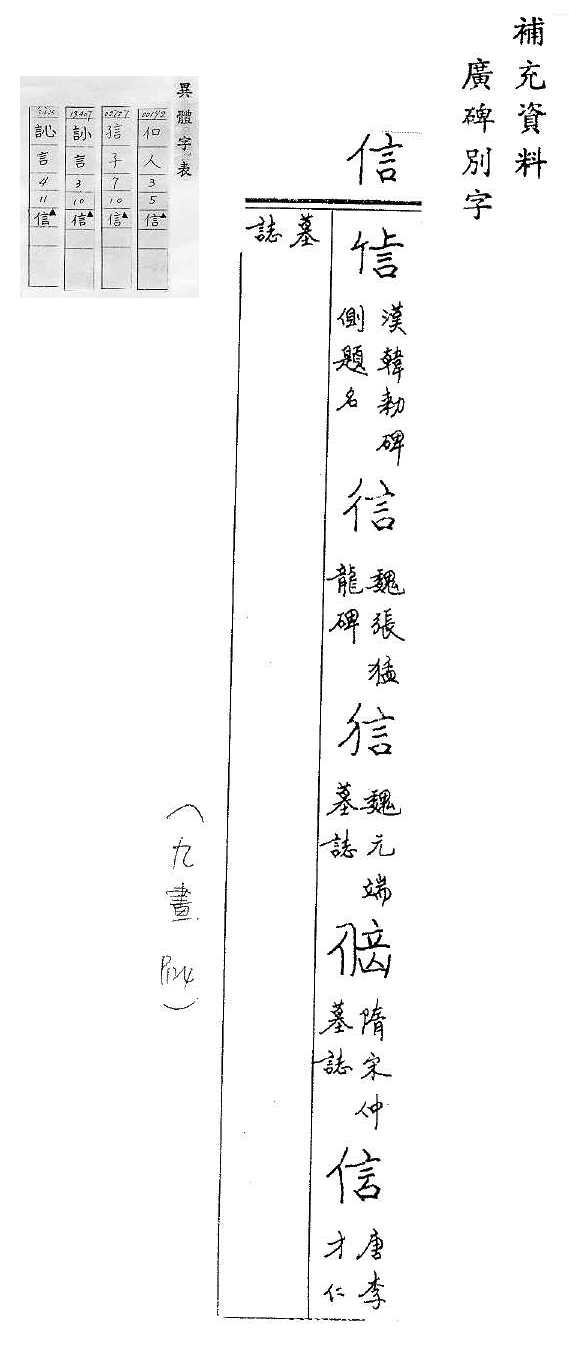 補充資料
廣碑別字
信
信
漢韓勑碑
側題名
信
魏張猛
龍碑
信
魏元端
墓誌
隋宋仲
墓誌
信
唐李
才仁
墓
誌
(九畫 P124)
異體字表
00142 㐰 人 3 5 信▲
02727 子 7 10 信▲
13407 言 3 10 信▲
訫 言 4 11 信▲